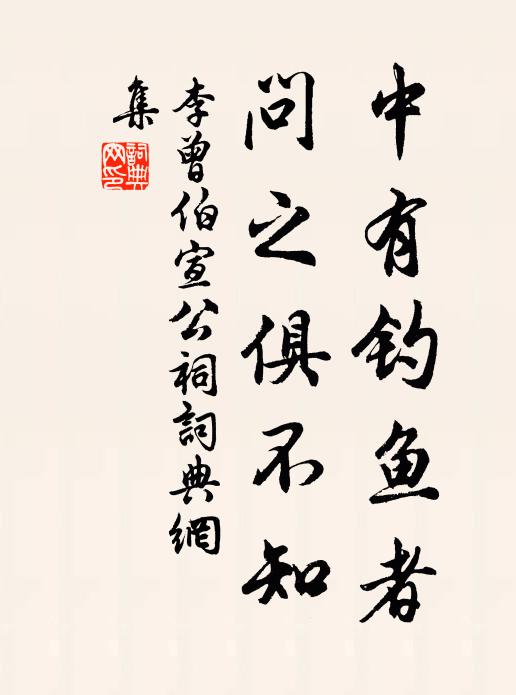 中有钓鱼者
问之俱不知
李曾伯宣公祠詞典網
集
詞典
网印